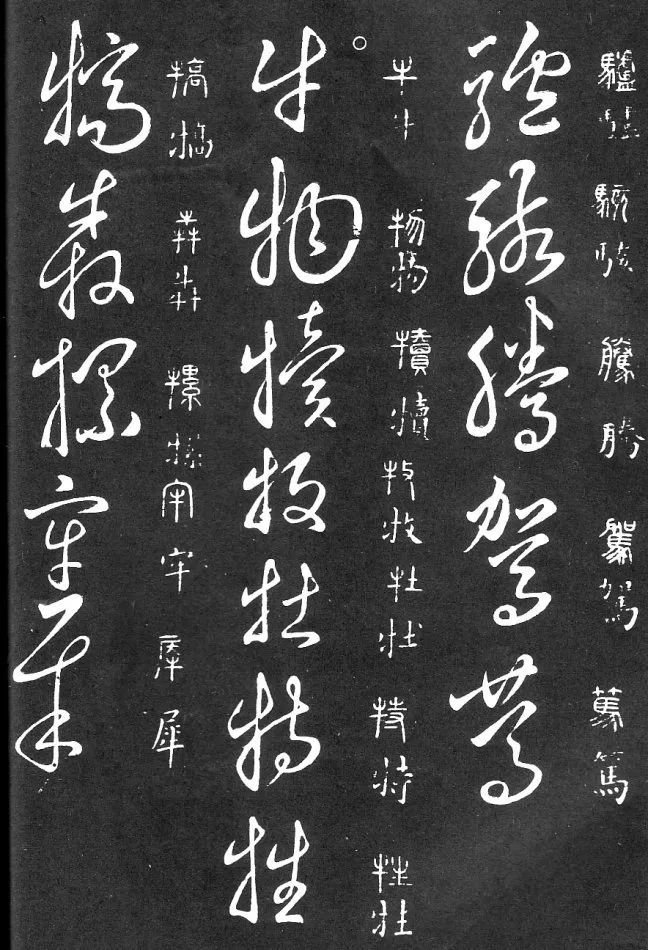 驢駭騰駕篤
驢驢 駭駭 騰騰 駕駕 篤篤
牛物犢牧牡特牲
牛牛 物物 犢犢 牧牧 牡牡 特特 牲牲
犒犇𤛗牢犀
犒犒 犇犇 牢牢 犀犀